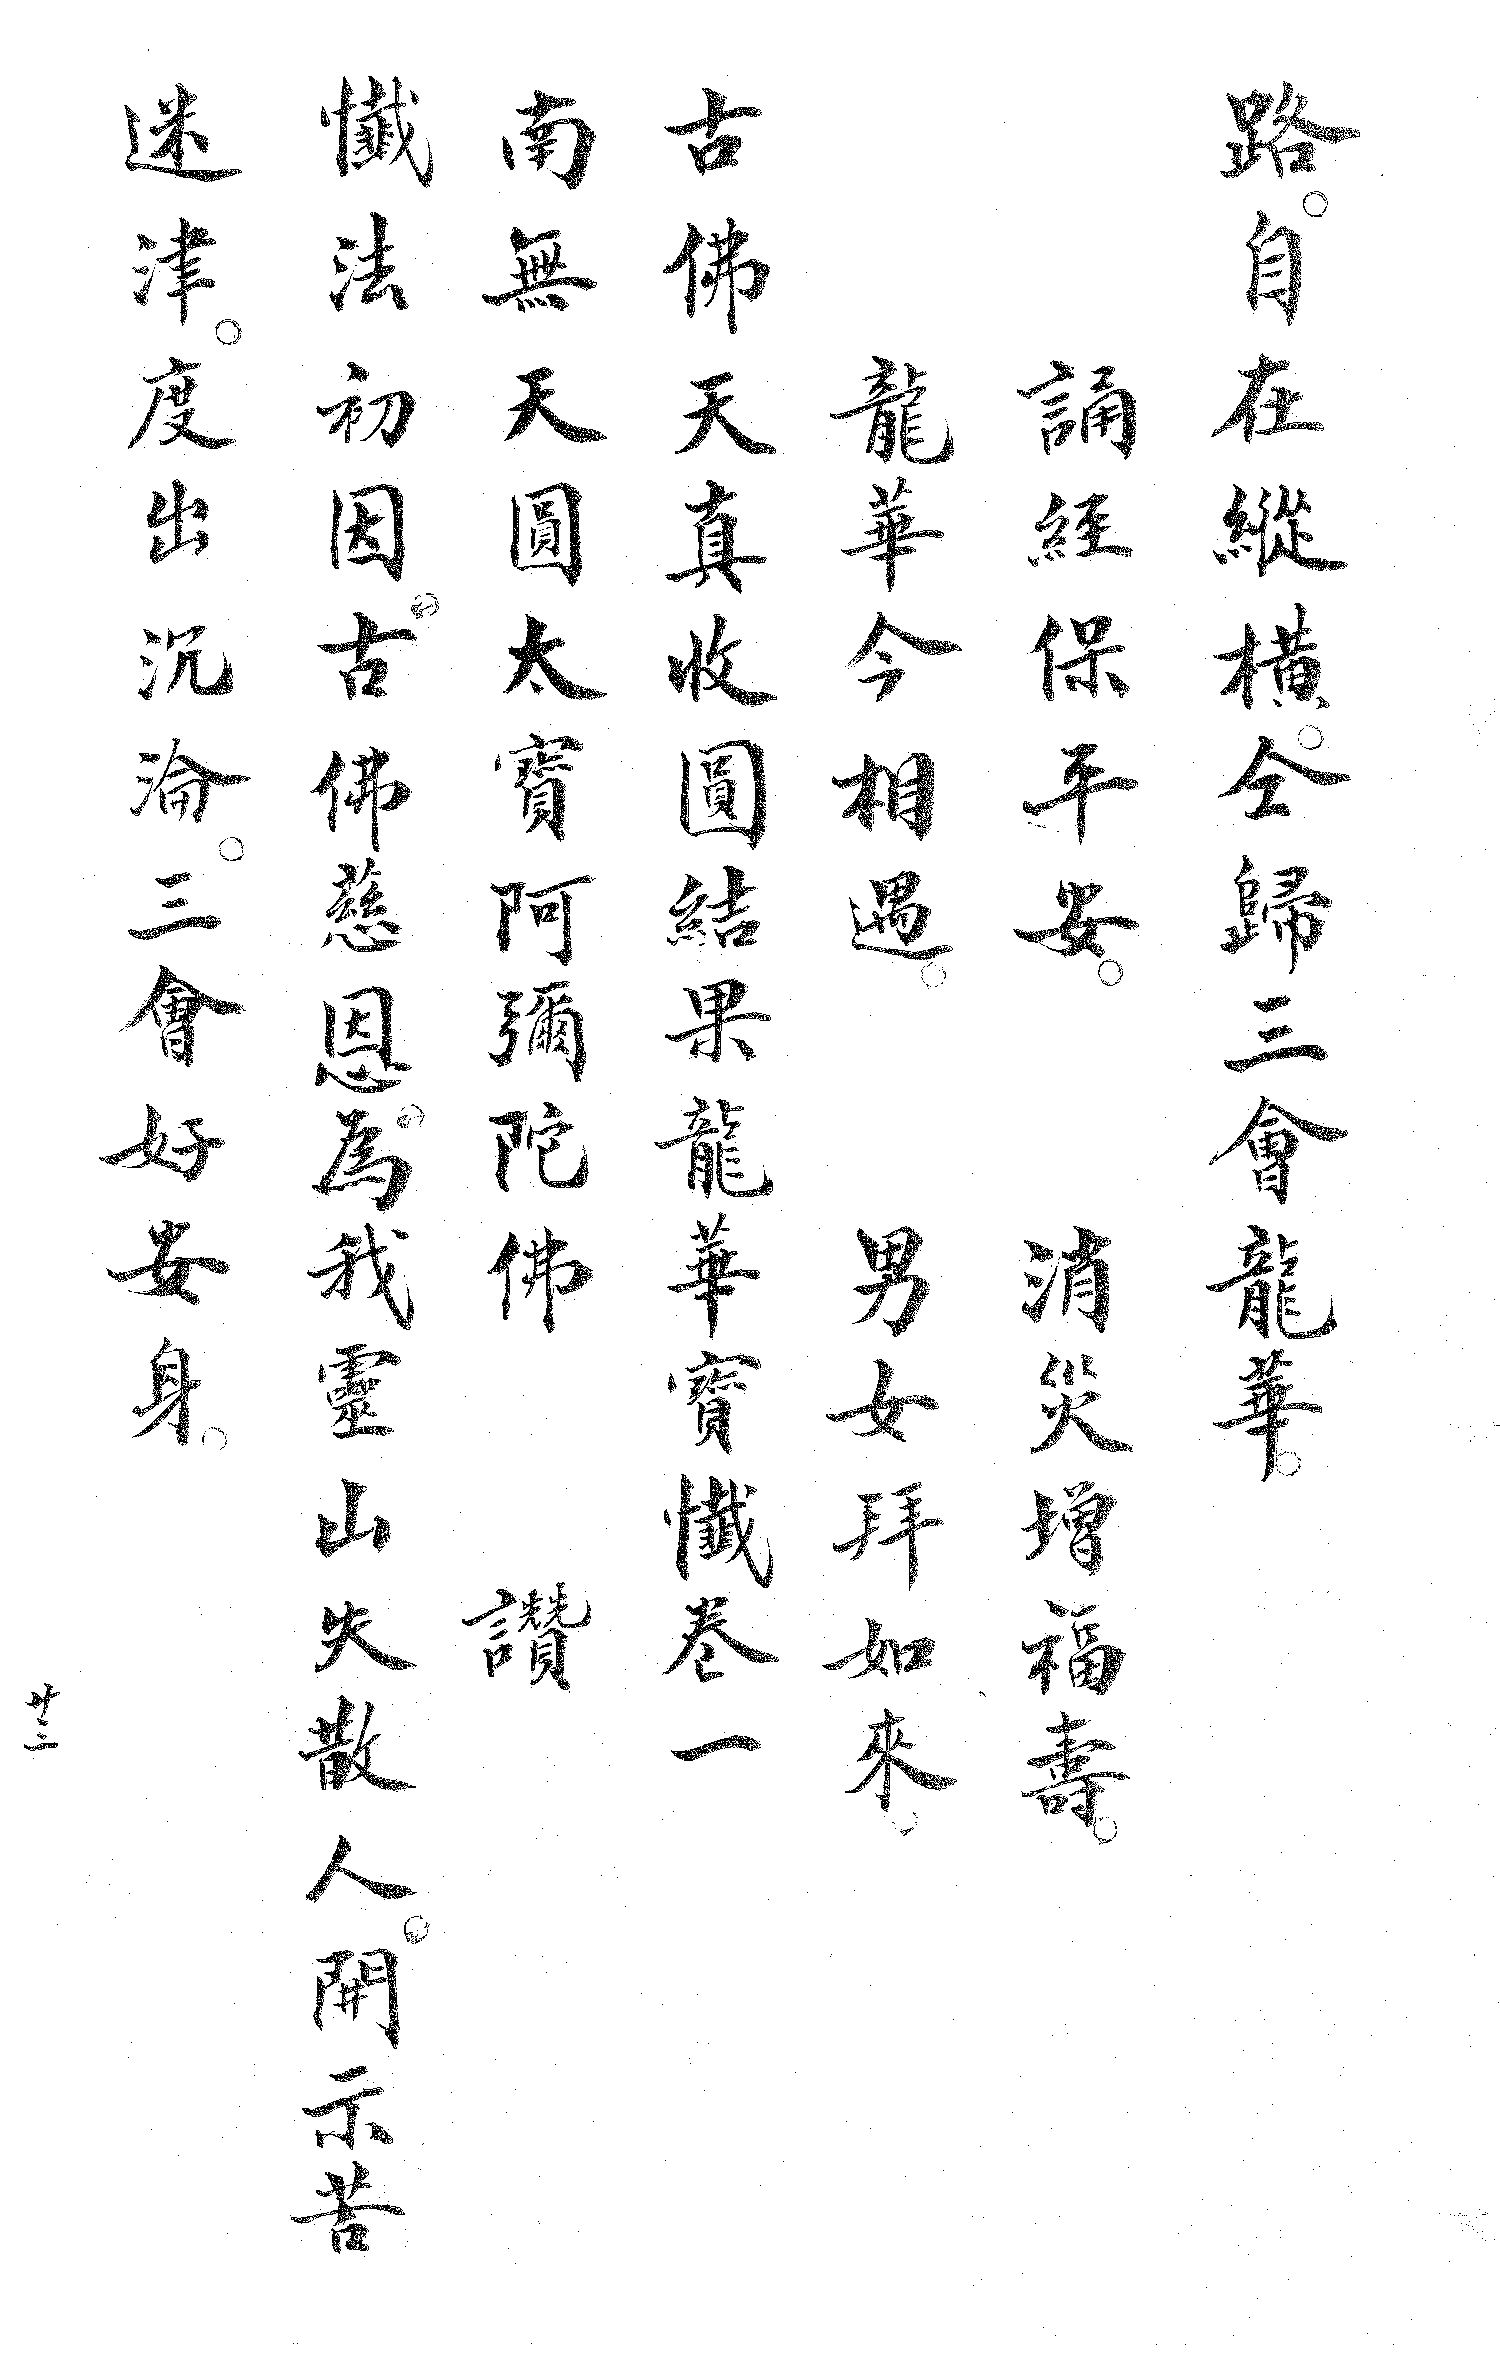 路。自在縱橫。仝歸三會龍華。
誦經保平安。　消災增福壽。
龍華今相遇。　男女拜如來。
古佛天真收圓結果龍華寶懺卷一
南無天圓太寶阿彌陀佛　讚
懺法初因。古佛慈恩。為我靈山失散人。開示苦
迷津。度出沉淪。三會好安身。
廿三